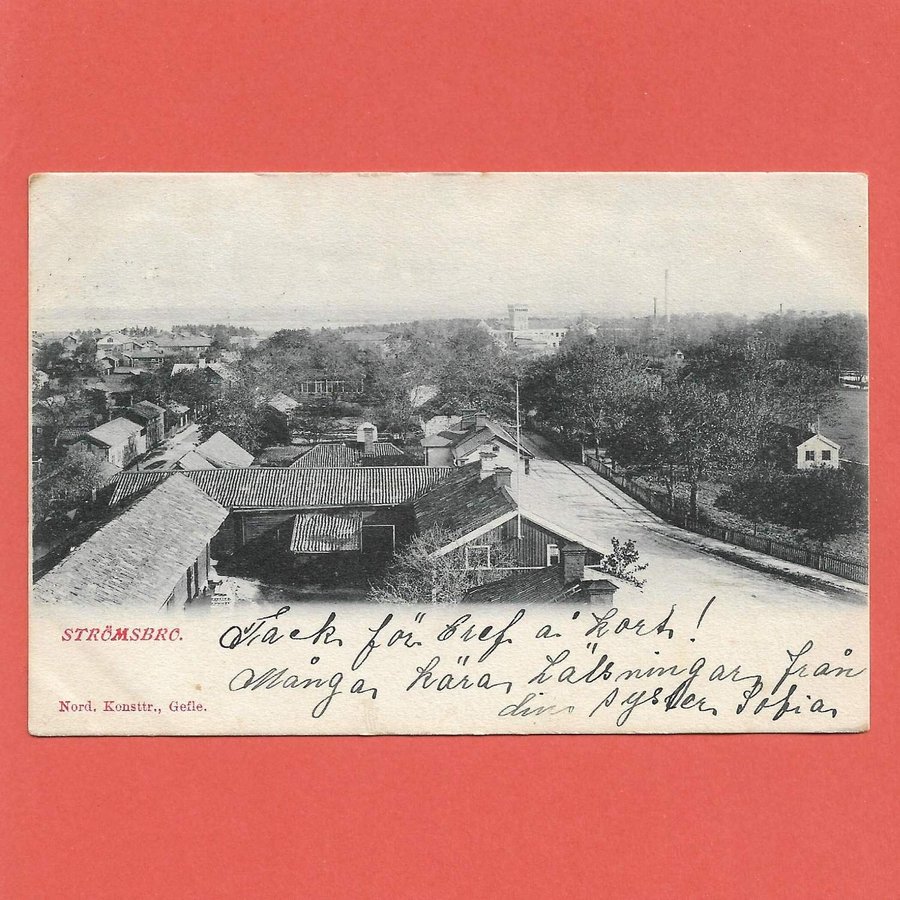 STRÖMSBRO.
Tack för bref å kort!
Många kära hälsningar från
din syster Sofia
Nord. Konsttr., Gefle.